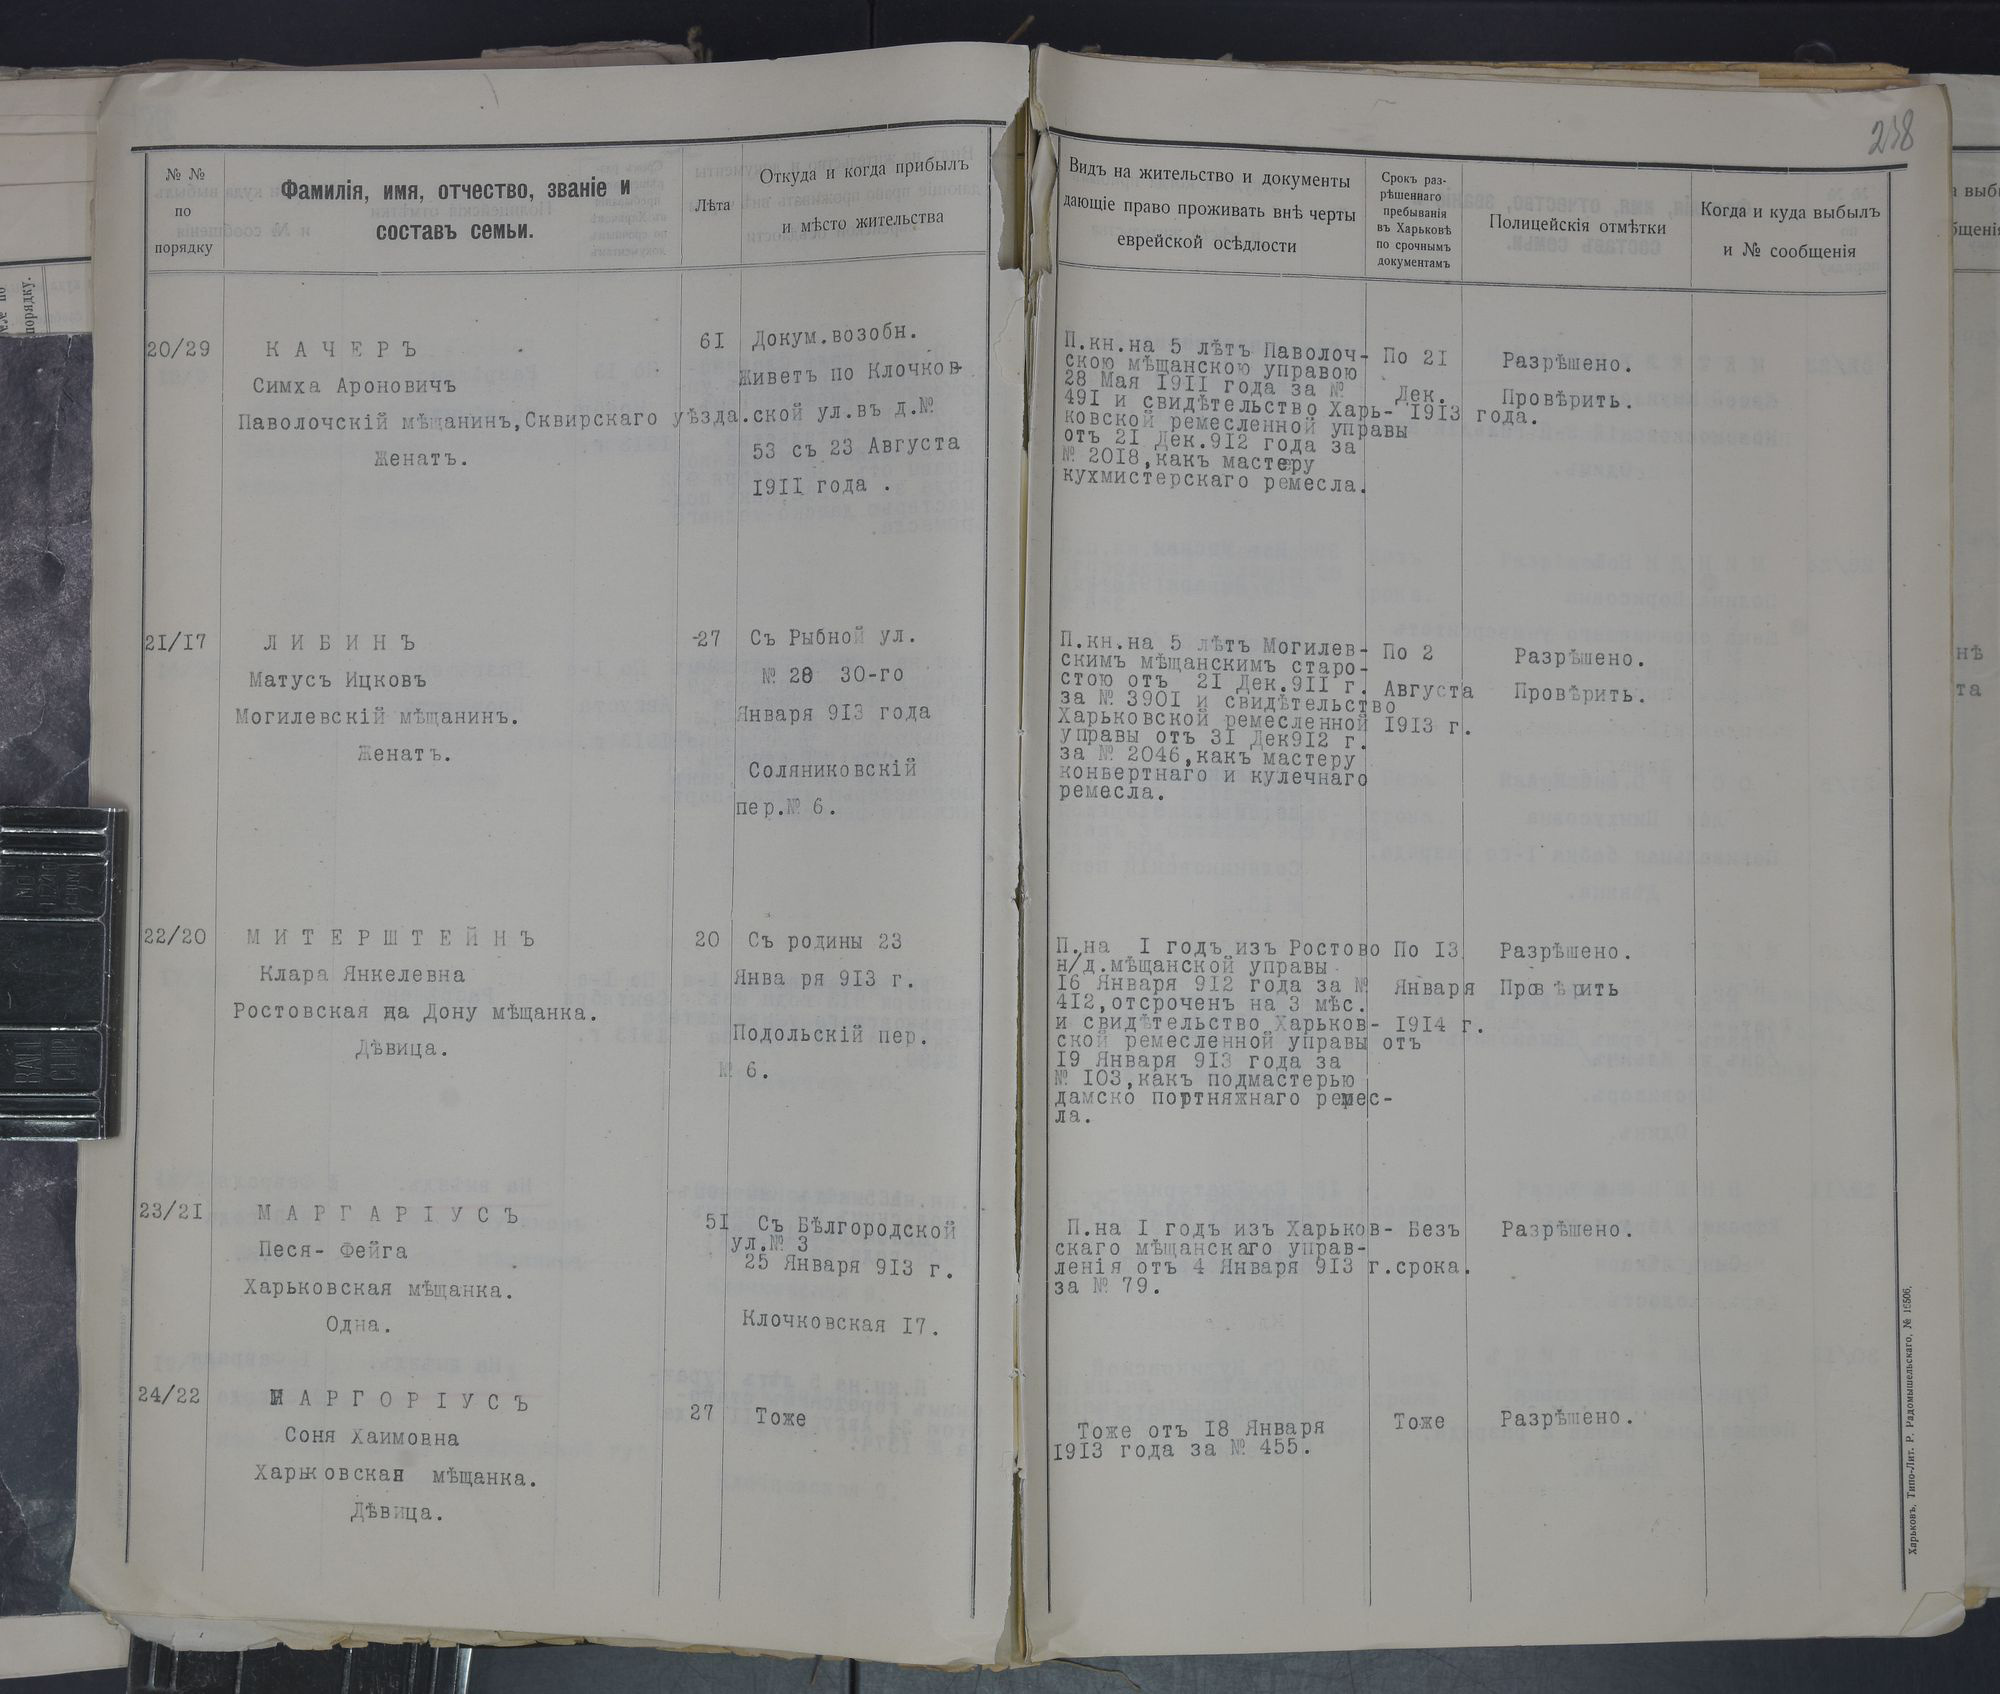 238
№ №
по
порядку
Фамилія, имя, отчество, званіе и
составъ семьи.
Лѣта
Откуда и когда прибылъ
и мѣсто жительства
Видъ на жительство и документы
дающіе право проживать внѣ черты
еврейской осѣдлости
Срокъ раз-
рѣшеннаго
пребыванія
въ Харьковѣ
по срочнымъ
документамъ
Полицейскія отмѣтки
Когда и куда выбылъ
и № сообщенія
20/29
КАЧЕРЪ
Симха Ароновичъ
Паволочскій мѣщанинъ,Сквирскаго уѣзда.
Женатъ.
61
Докум.возобн.
Живетъ по Клочков-
ской ул.въ д.№
53 съ 23 Августа
1911 года .
П.кн.на 5 лѣтъ Паволоч-
скою мѣщанскою управою
28 Мая 1911 года за №
491 и свидѣтельство Харь-
ковской ремесленной управы
отъ 21 Дек.912 года за
№ 2018,какъ мастеру
кухмистерскаго ремесла.
По 21
Дек.
1913 года.
Разрѣшено.
Провѣрить.
21/17
ЛИБИНЪ
Матусъ Ицковъ
Могилевскій мѣщанинъ.
Женатъ.
-27
Съ Рыбной ул.
№ 28 30-го
Января 913 года
Соляниковскій
пер.№ 6.
П.кн.на 5 лѣтъ Могилев-
скимъ мѣщанскимъ старо-
стою отъ 21 Дек.911 г.
за № 3901 и свидѣтельство
Харьковской ремесленной
управы отъ 31 Дек912 г.
за № 2046,какъ мастеру
конвертнаго и кулечнаго
ремесла.
По 2
Августа
1913 г.
Разрѣшено.
Провѣрить.
22/20
МИТЕРШТЕЙНЪ
Клара Янкелевна
Ростовская на Дону мѣщанка.
Дѣвица.
20
Съ родины 23
Янва ря 913 г.
Подольскій пер.
№ 6.
П.на 1 годъ изъ Ростово
н/д.мѣщанской управы
16 Января 912 года за №
412,отсроченъ на 3 мѣс.
и свидѣтельство Харьков-
ской ремесленной управы отъ
19 Января 913 года за
№ 103,какъ подмастерью
дамско портняжнаго ремес-
ла.
По 13
Января
1914 г.
Разрѣшено.
Провѣрить
23/21
МАРГАРІУСЪ
Песя- Фейга
Харьковская мѣщанка.
Одна.
51
Съ Бѣлгородской
ул.№ 3
25 Января 913 г.
Клочковская 17.
П.на 1 годъ изъ Харьков-
скаго мѣщанскаго управ-
ленія отъ 4 Января 913 г.
за № 79.
Безъ
срока.
Разрѣшено.
24/22
МАРГОРІУСЪ
Соня Хаимовна
Харьковская мѣщанка.
Дѣвица.
27
Тоже
Тоже отъ 18 Января
1913 года за № 455.
Тоже
Разрѣшено.
Харьковъ, Типо-Лит. Р. Радомышельскаго, № 16506.
порядку.